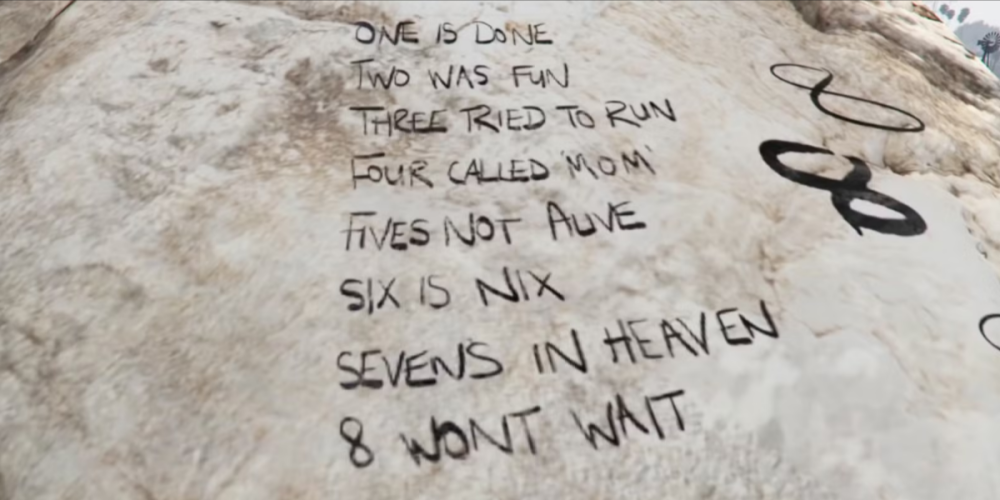 ONE IS DONE
TWO WAS FUN
THREE TRIED TO RUN
FOUR CALLED 'MOM'
FIVES NOT ALIVE
SIX IS NIX
SEVENS IN HEAVEN
8 WONT WAIT
8
8